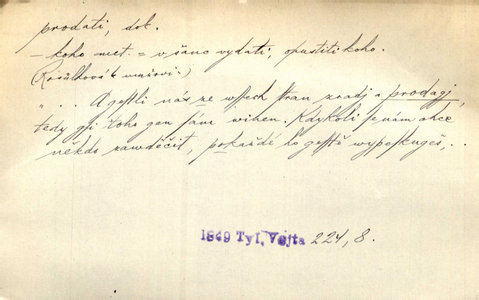 prodati, dok.
– koho met. = v šanc vydati, opustiti koho.
(Kozulková k mužovi:)
„... A gestli nás ze wssech stran zradj a prodagj,
tedy gsi toho gen sám winen. Kdykoli se nám chce
někdo zawděčit, pokaždé ho gesstě wypeskugeš...
1849 Tyl, Vojta 224, 8.